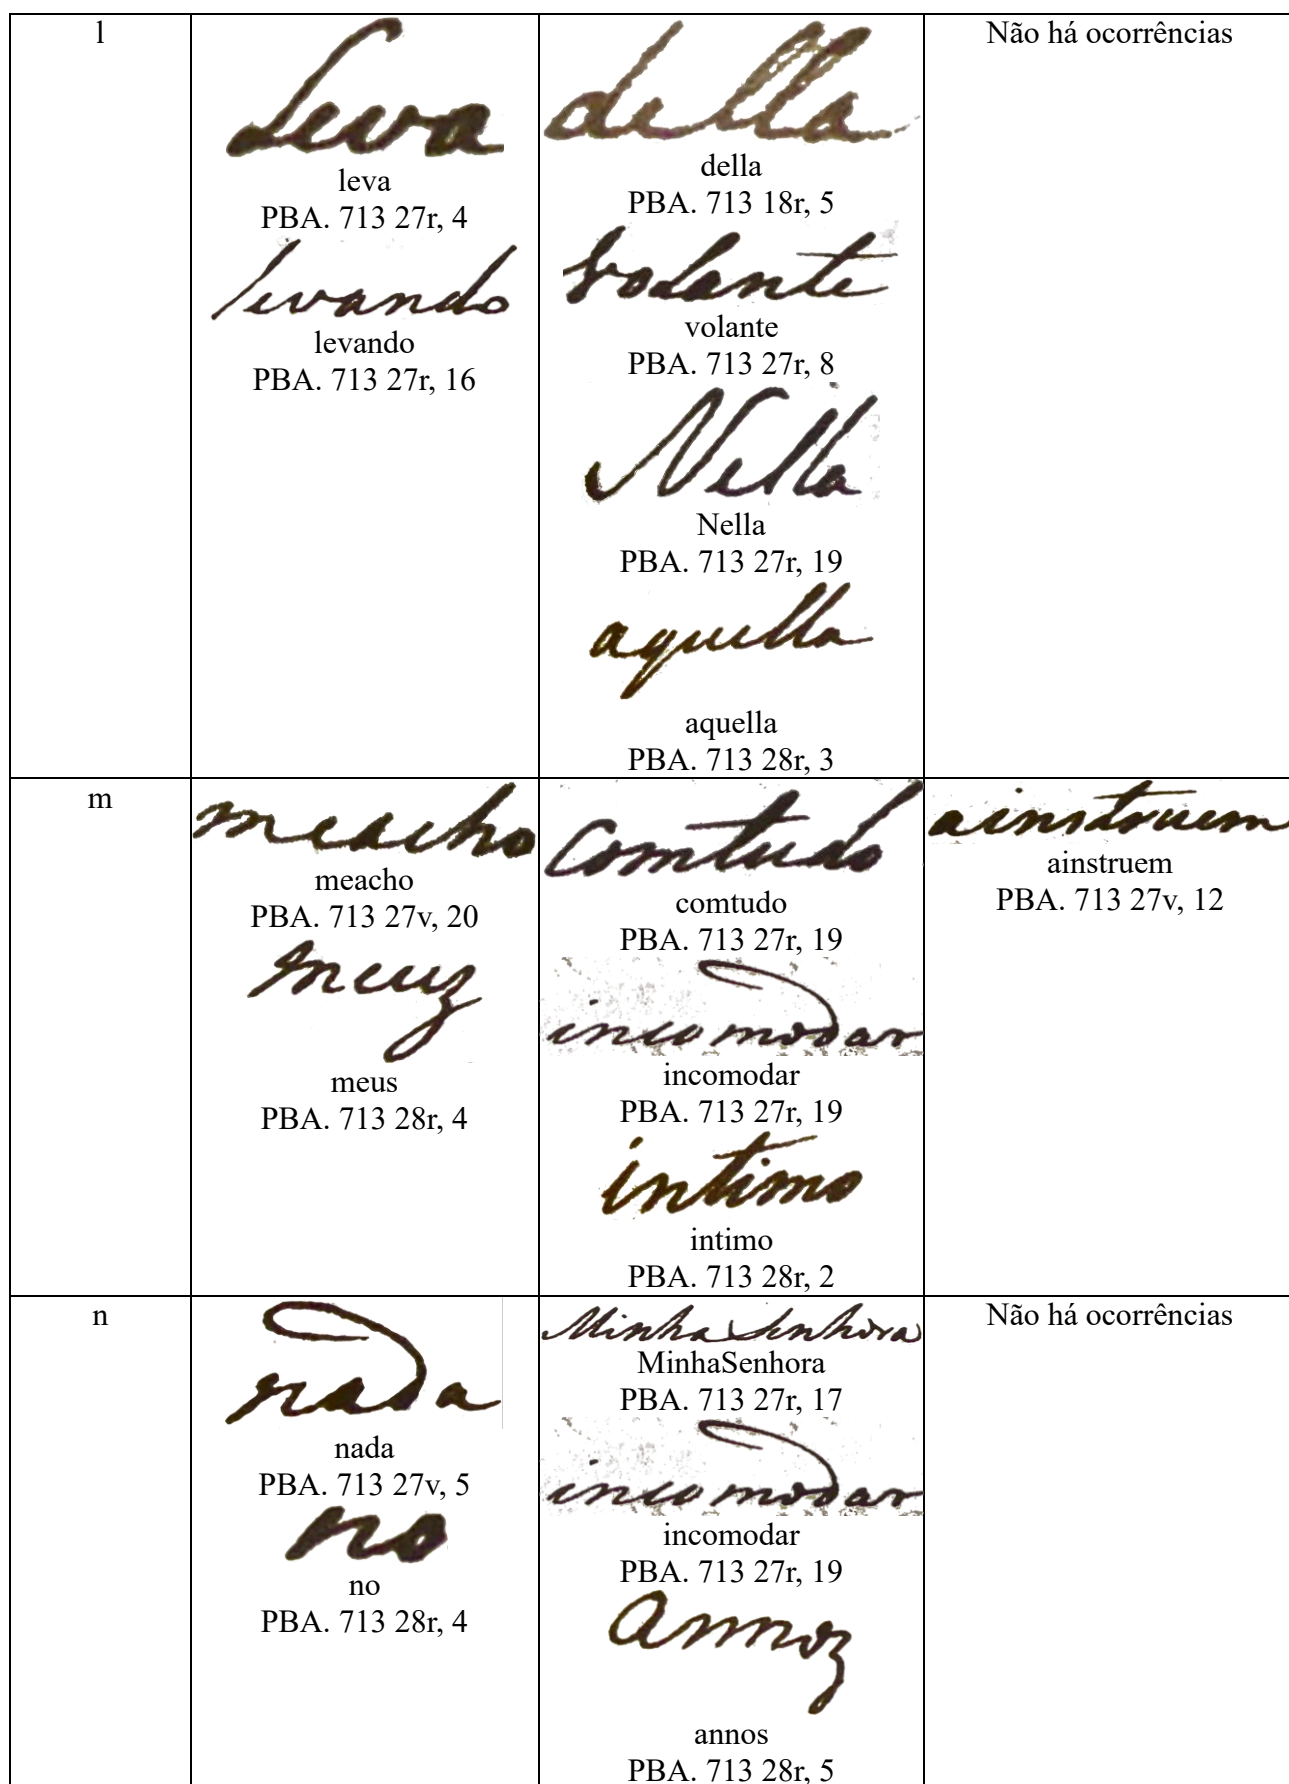 l
leva
leva
PBA. 713 27r, 4
levando
levando
PBA. 713 27r, 16
della
della
PBA. 713 18r, 5
volante
volante
PBA. 713 27r, 8
Nella
Nella
PBA. 713 27r, 19
aquella
aquella
PBA. 713 28r, 3
Não há ocorrências
m
meacho
meacho
PBA. 713 27v, 20
meus
meus
PBA. 713 28r, 4
comtudo
comtudo
PBA. 713 27r, 19
incomodar
incomodar
PBA. 713 27r, 19
intimo
intimo
PBA. 713 28r, 2
ainstruem
ainstruem
PBA. 713 27v, 12
n
nada
nada
PBA. 713 27v, 5
no
no
PBA. 713 28r, 4
Minha Senhora
MinhaSenhora
PBA. 713 27r, 17
incomodar
incomodar
PBA. 713 27r, 19
annos
annos
PBA. 713 28r, 5
Não há ocorrências